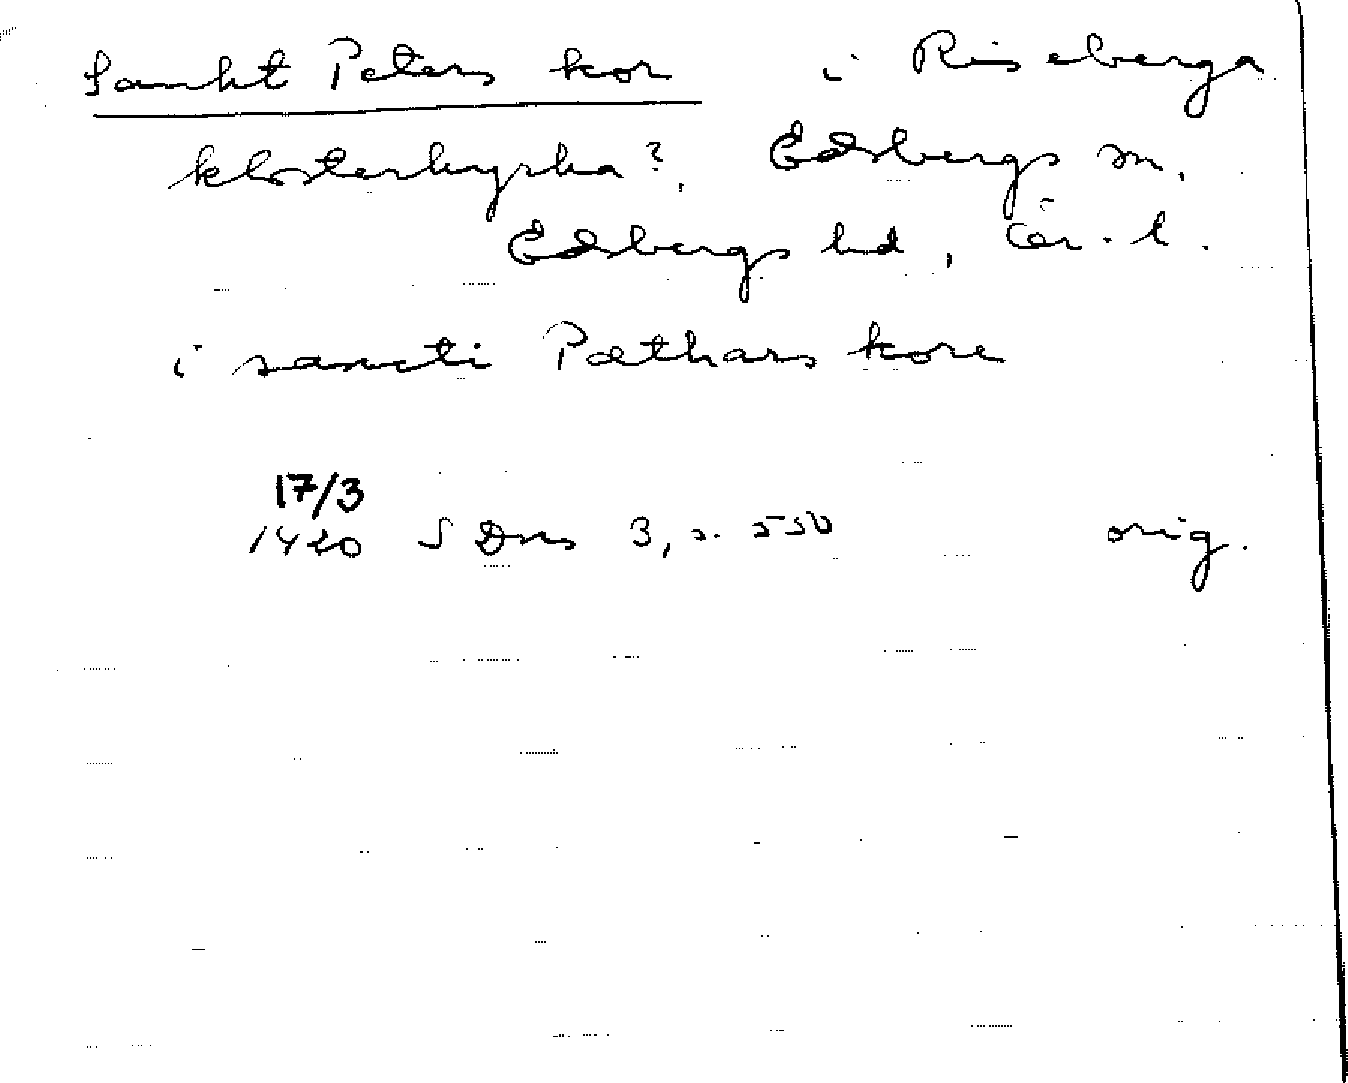 Sankt Peters kor i Riseberga
klosterkyrka?, Edsbergs sn,
Edsbergs hd, Ör. l.
i sancti Pæthars kore
17/3
1420 SDns 3, s. 550 orig.